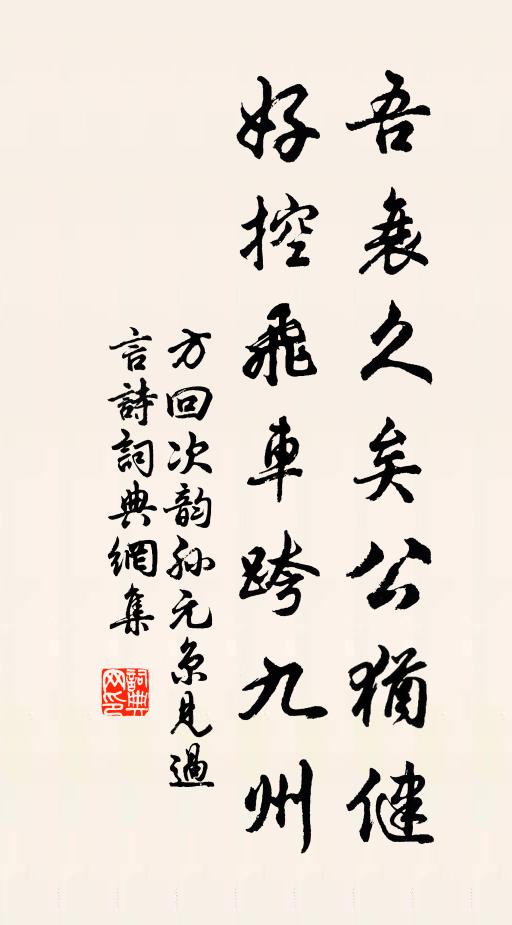 吾衰久矣公猶健
好控飛車跨九州
方回次韵孙元京見過
言詩詞典網集
詞典网印